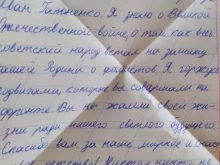 Иван Ткаченко. Я знаю о Великой
Отечественной войне, о том как весь
советский народ встал на защиту
нашей Родины от фашистов. Я горжусь
подвигами, которые вы совершали на
фронте. Вы не жалели своей жи-
зни ради нашего светлого будущего
Спасибо вам за наше мирное и
детство!